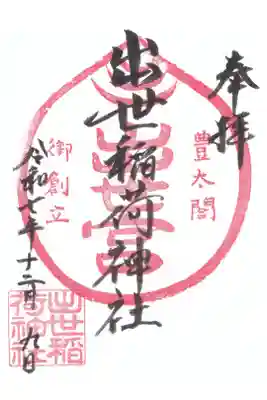 奉拝
豊太閤
出世稲荷神社
御創立
令和七年十二月九日
出世稲
荷神社